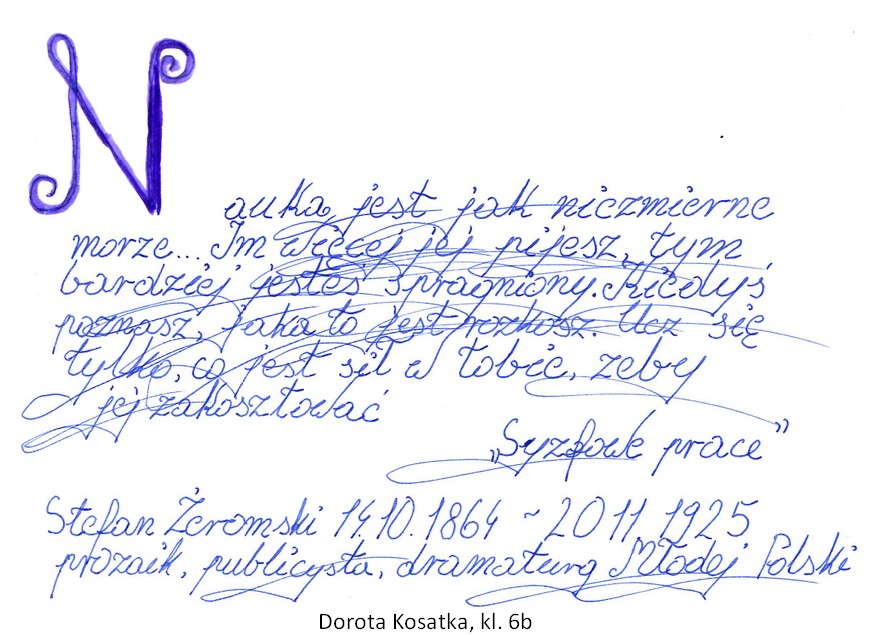 Nauka jest jak niezmierne
morze... Im więcej jej pijesz, tym
bardziej jesteś spragniony. Kiedyś
poznasz, jaka to jest rozkosz. Ucz się
tylko, co jest sił w tobie, żeby
jej zakosztować
„Syzyfowe prace”
Stefan Żeromski 14.10.1864 ~ 20 11 1925
prozaik, publicysta, dramaturg Młodej Polski
Dorota Kosatka, kl. 6b